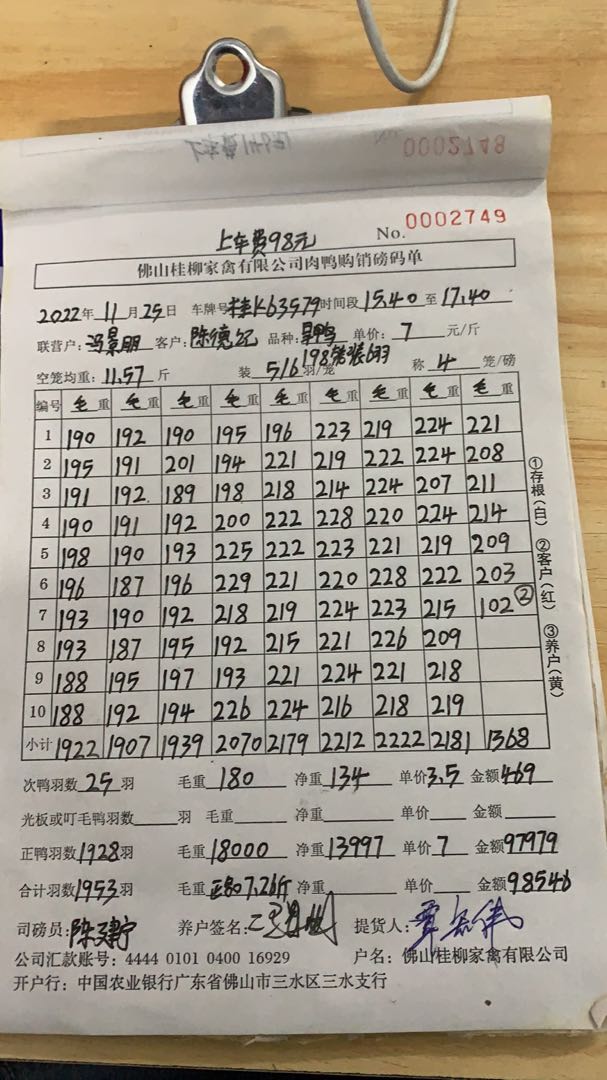 0002748
上车费98元
No. 0002749
佛山桂柳家禽有限公司肉鸭购销磅码单
2022年11月25日 车牌号桂K63579时间段15.40至17.40
联营户:冯景朋 客户:陈德 品种: 单价:7 元/斤
198笼装6羽
空笼均重:11.57斤 装5/6羽/笼 称4笼/磅
编号 毛重 毛重 毛重 毛重 毛重 毛重 毛重 毛重 毛重
1 190 192 190 195 196 223 219 224 221
2 195 191 201 194 221 219 222 224 208
3 191 192 189 198 218 214 224 207 211
4 190 191 192 200 222 228 220 224 214
5 198 190 193 225 222 223 221 219 209
6 196 187 196 229 221 220 228 222 203
7 193 190 192 218 219 224 223 215 102②
8 193 187 195 192 215 221 226 209
9 188 195 197 193 221 224 221 218
10 188 192 194 226 224 216 218 219
小计 1922 1907 1939 2070 2179 2212 2222 2181 1368
①存根(白) ②客户(红) ③养户(黄)
次鸭羽数25羽 毛重180 净重134 单价3.5 金额469
光板或叮毛鸭羽数 羽 毛重 净重 单价 金额
正鸭羽数1928羽 毛重18000 净重13997 单价7 金额97979
合计羽数1953羽 毛重正均7.26斤 净重 单价 金额98546
司磅员:陈建宁 养户签名: 提货人:
公司汇款账号:4444 0101 0400 16929 户名:佛山桂柳家禽有限公司
开户行:中国农业银行广东省佛山市三水区三水支行